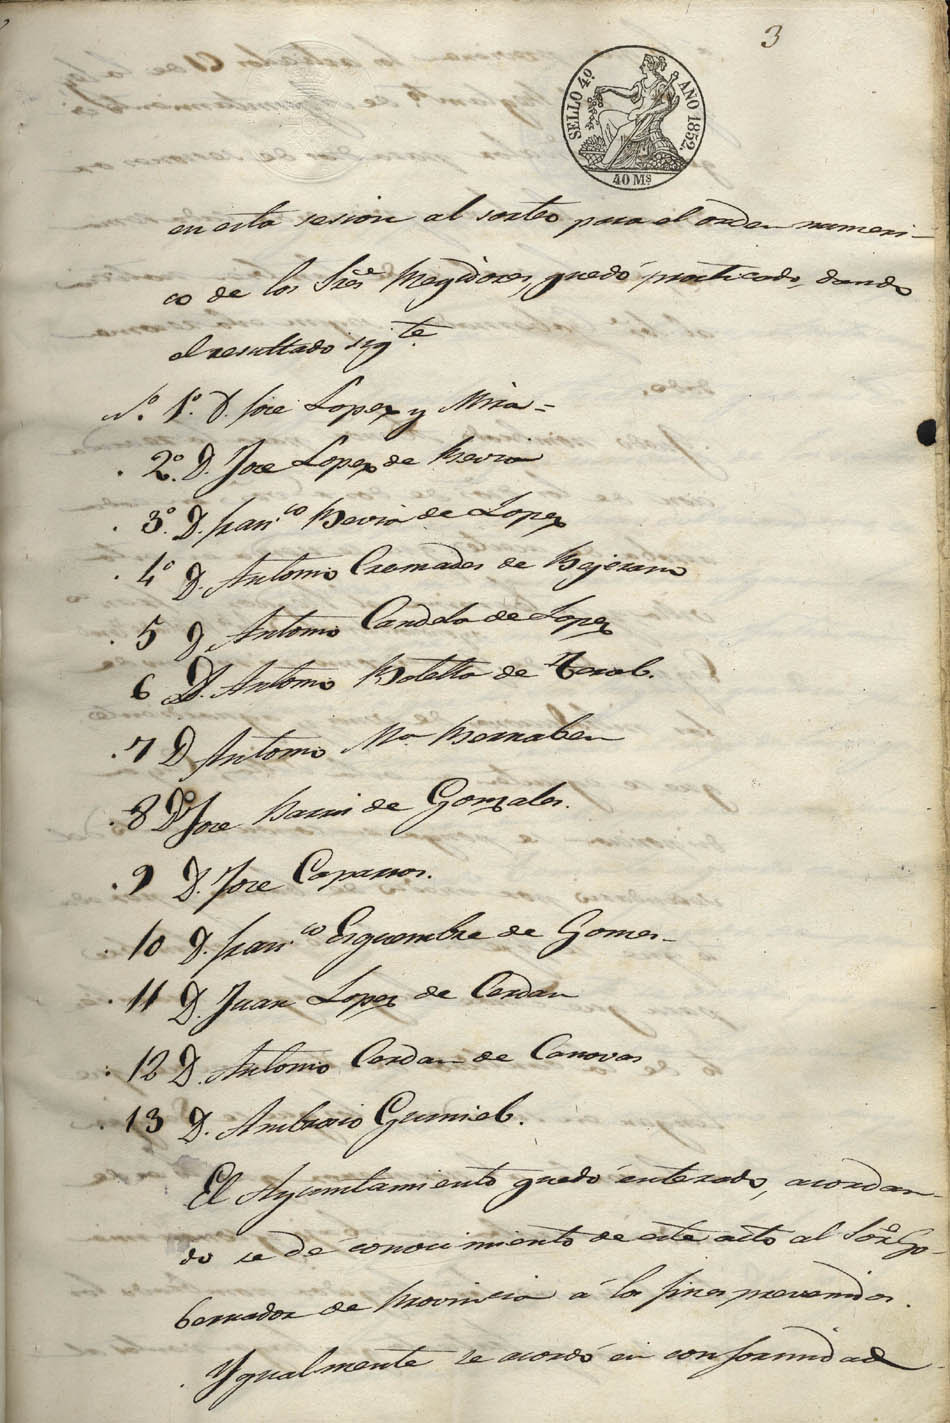 3
SELLO 4º AÑO 1852.
40 Ms
en esta sesion al sorteo para el orden numeri-
co de los Sres Regidores, quedó practicado, dando
el resultado sigte.
Nº. 1º. D. Jose Lopez y Mira=
2º. D. Jose Lopez de Hevia
3º. D. Franco Hevia de Lopez
4º D. Antonio Cremades de Bejerano
5 D. Antonio Candela de Lopez
6 D. Antonio Botella de
7 D Antonio Ma Bernabeu
8 Dn Jose de Gonzales.
9 D. Jose Caparros.
10 D. Franco Esquembre de Gomes-
11 D. Juan Lopez de Cerdan
12 D. Antonio Cerdan de Canovas
13 D. Ambrosio Gumiel.
El Ayuntamiento quedó enterado, acordan-
do se dé conocimiento de este acto al Sor. Go-
bernador de Provincia á los fines prevenidos.
Ygualmente se acordó en conformidad